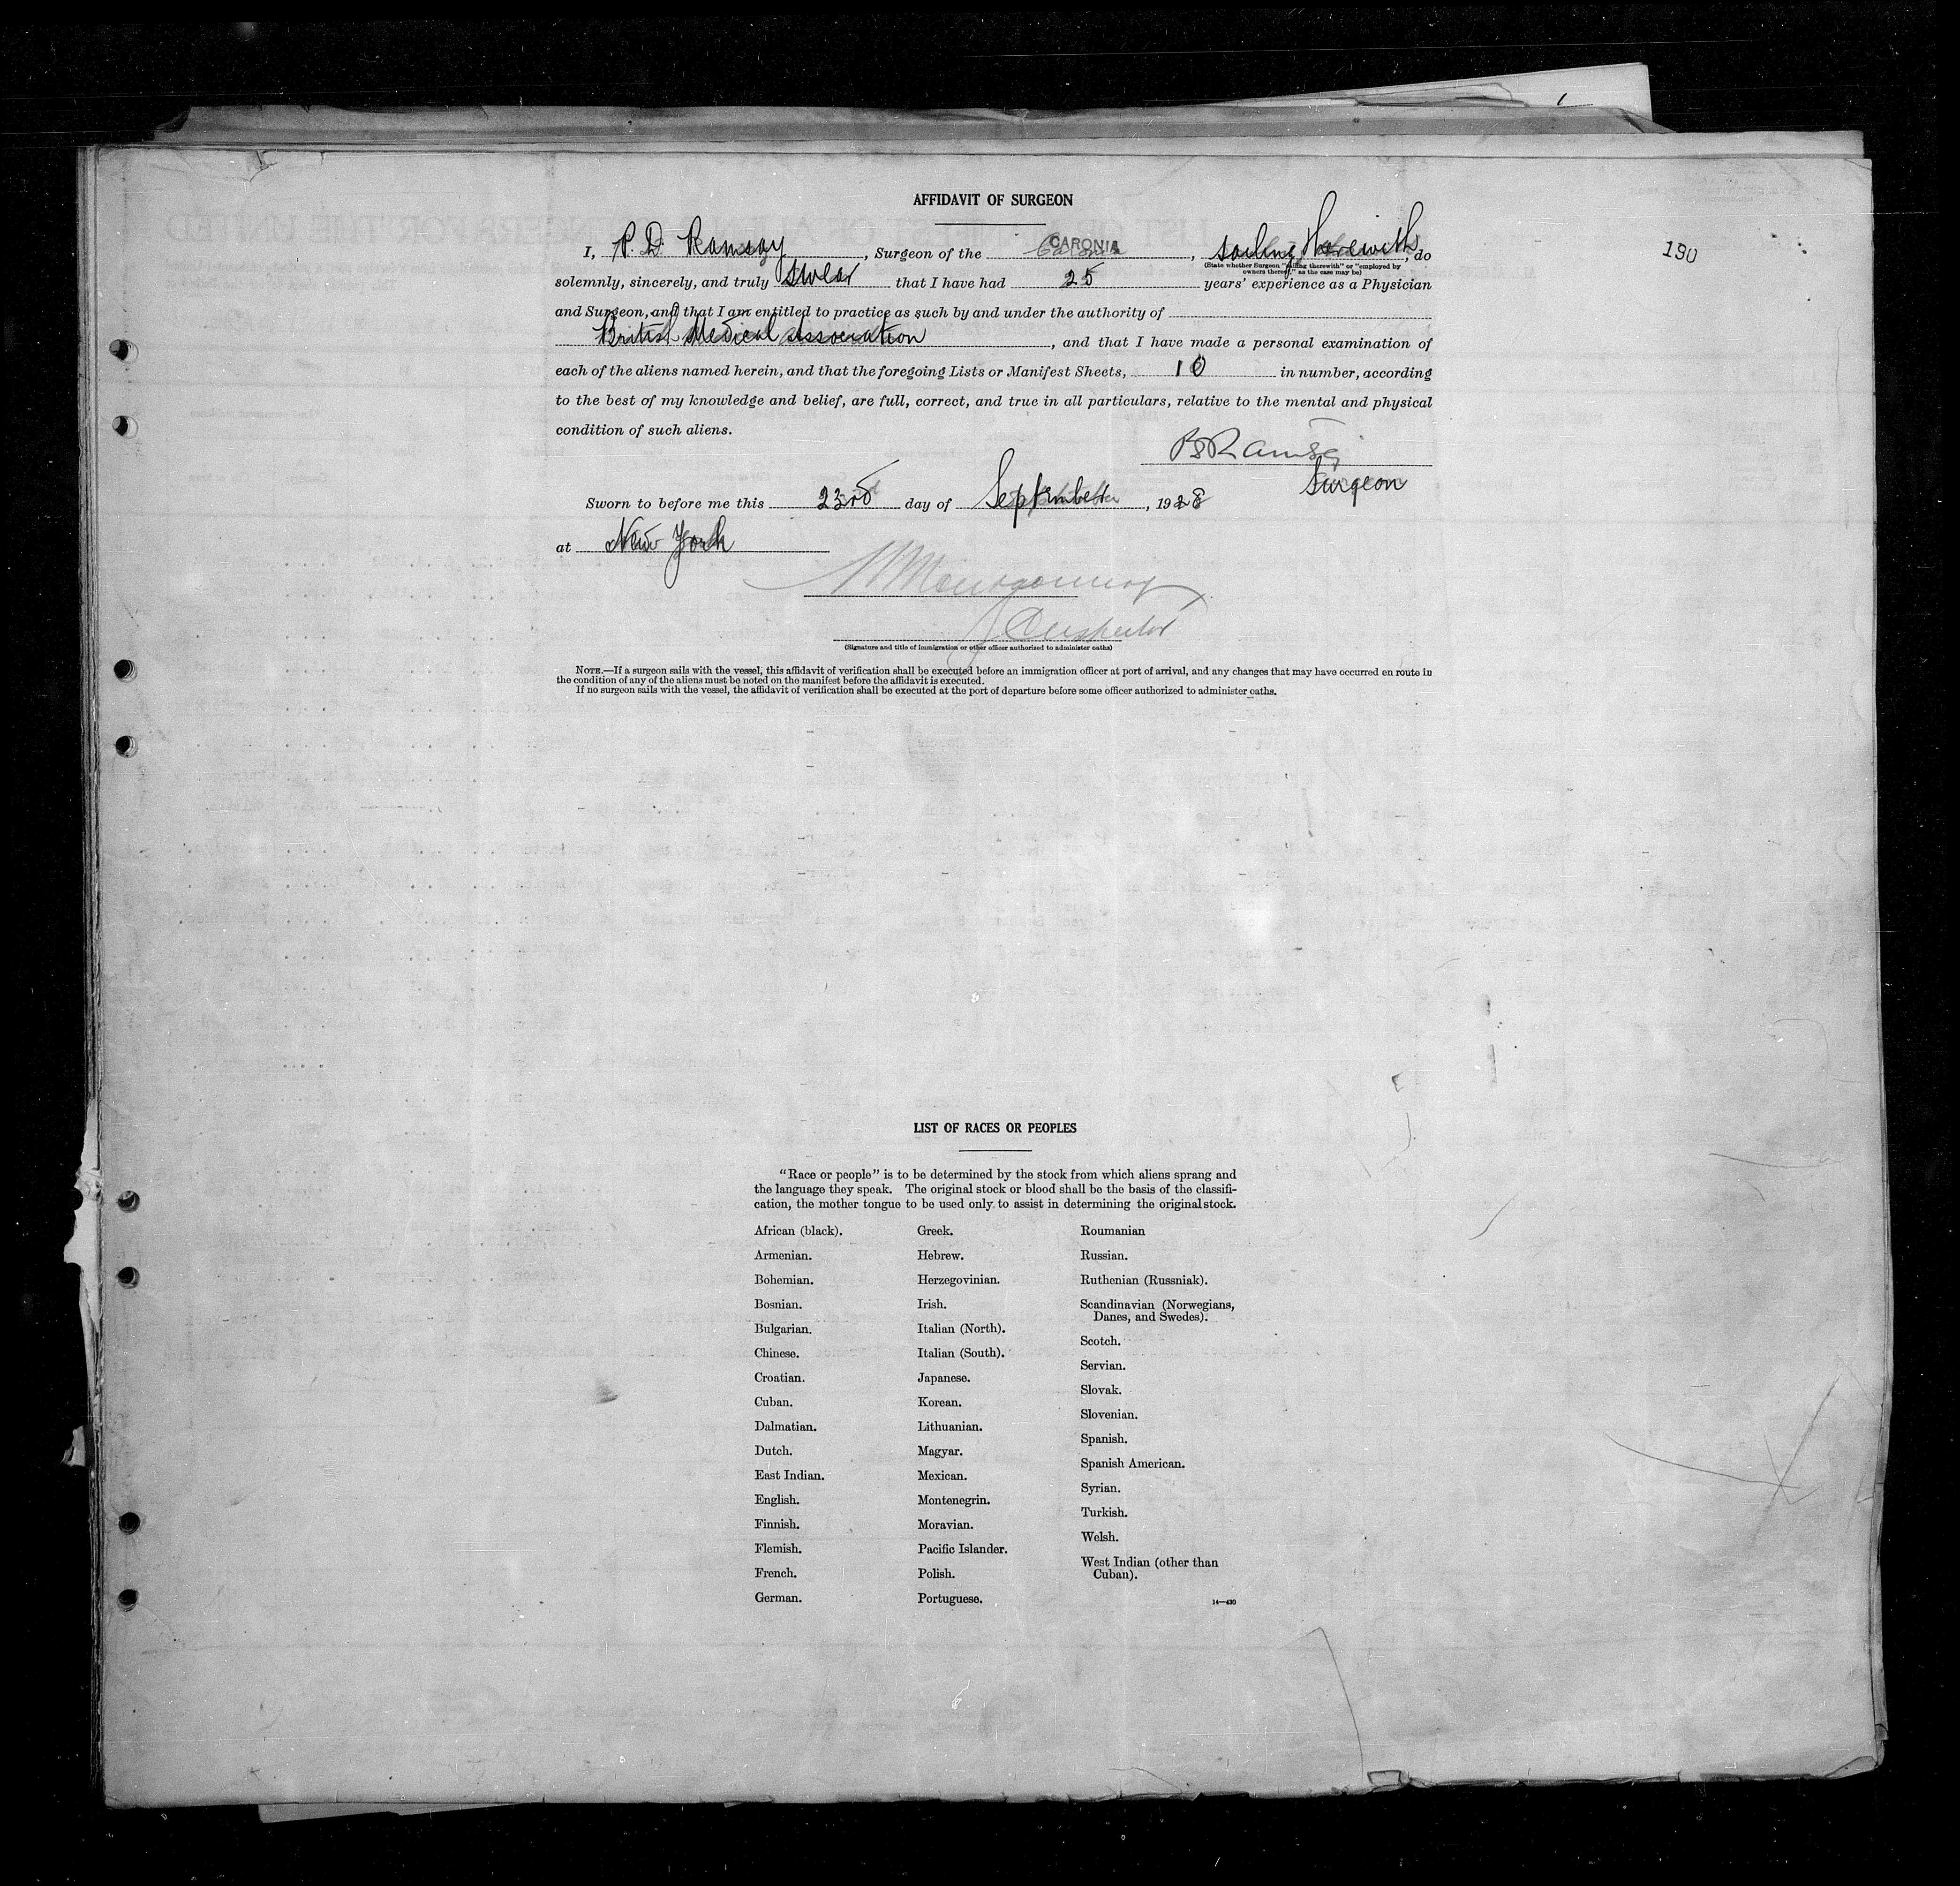 AFFIDAVIT OF SURGEON
190
I, P. D. Ramsay, Surgeon of the CARONIA, sailing Herewith, do
(State whether Surgeon "sailing therewith" or "employed by
owners thereof," as the case may be)
solemnly, sincerely, and truly swear that I have had 25 years' experience as a Physician
and Surgeon, and that I am entitled to practice as such by and under the authority of
British Medical Association, and that I have made a personal examination of
each of the aliens named herein, and that the foregoing Lists or Manifest Sheets, 10 in number, according
to the best of my knowledge and belief, are full, correct, and true in all particulars, relative to the mental and physical
condition of such aliens.
Ramsay
Surgeon
Sworn to before me this 23rd day of September, 1928
at New York
Montgomery
Inspector
(Signature and title of immigration or other officer authorized to administer oaths)
NOTE.—If a surgeon sails with the vessel, this affidavit of verification shall be executed before an immigration officer at port of arrival, and any changes that may have occurred en route in
the condition of any of the aliens must be noted on the manifest before the affidavit is executed.
If no surgeon sails with the vessel, the affidavit of verification shall be executed at the port of departure before some officer authorized to administer oaths.
LIST OF RACES OR PEOPLES
"Race or people" is to be determined by the stock from which aliens sprang and
the language they speak. The original stock or blood shall be the basis of the classifi-
cation, the mother tongue to be used only to assist in determining the original stock.
African (black).
Armenian.
Bohemian.
Bosnian.
Bulgarian.
Chinese.
Croatian.
Cuban.
Dalmatian.
Dutch.
East Indian.
English.
Finnish.
Flemish.
French.
German.
Greek.
Hebrew.
Herzegovinian.
Irish.
Italian (North).
Italian (South).
Japanese.
Korean.
Lithuanian.
Magyar.
Mexican.
Montenegrin.
Moravian.
Pacific Islander.
Polish.
Portuguese.
Roumanian
Russian.
Ruthenian (Russniak).
Scandinavian (Norwegians,
Danes, and Swedes).
Scotch.
Servian.
Slovak.
Slovenian.
Spanish.
Spanish American.
Syrian.
Turkish.
Welsh.
West Indian (other than
Cuban).
14—430